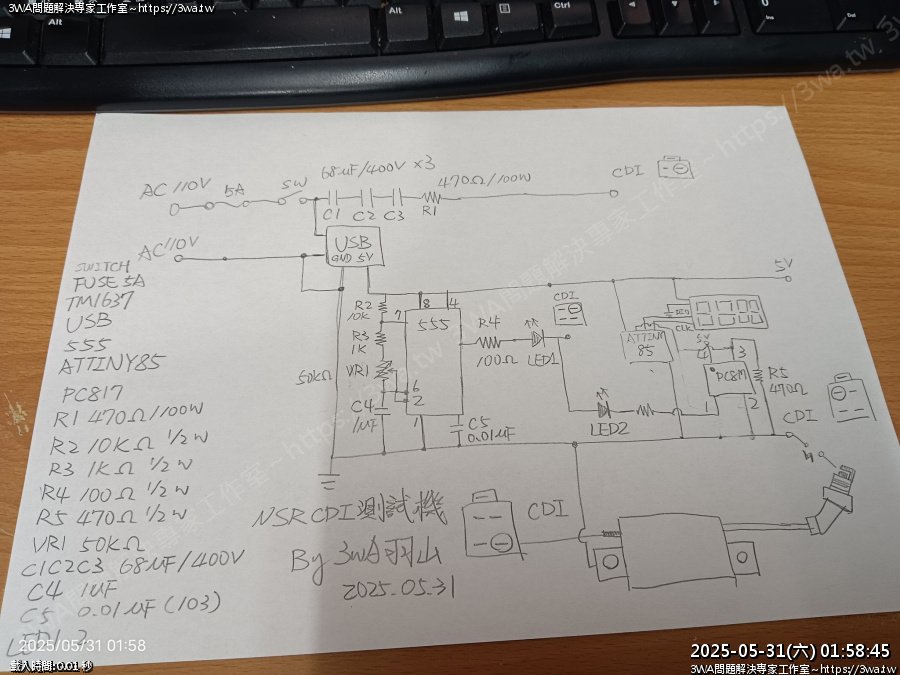 3WA問題解決專家工作室~https://3wa.tw
Alt
Alt
Ctrl
0
Ins
Del
3WA問題解決專家工作室~https://3wa.tw
AC 110V
5A
SW
68uF/400V ×3
470Ω/100W
CDI
C1
C2
C3
R1
AC 110V
USB
GND 5V
5V
SWITCH
FUSE 5A
TM1637
USB
555
ATTINY85
PC817
R1 470Ω/100W
R2 10KΩ 1/2W
R3 1KΩ 1/2W
R4 100Ω 1/2W
R5 470Ω 1/2W
VR1 50KΩ
C1C2C3 68uF/400V
C4 1uF
C5 0.01uF (103)
R2
10K
R3
1K
VR1
50KΩ
C4
1uF
7
8
4
555
6
2
1
C5
0.01uF
R4
100Ω
LED1
CDI
LED2
ATTINY
85
CLK
5V
4
3
PC817
1
2
R5
470Ω
CDI
NSR CDI測試機
By 3WA羽山
2025.05.31
CDI
2025/05/31 01:58
載入時間:0.01 秒
2025-05-31(六) 01:58:45
3WA問題解決專家工作室~https://3wa.tw